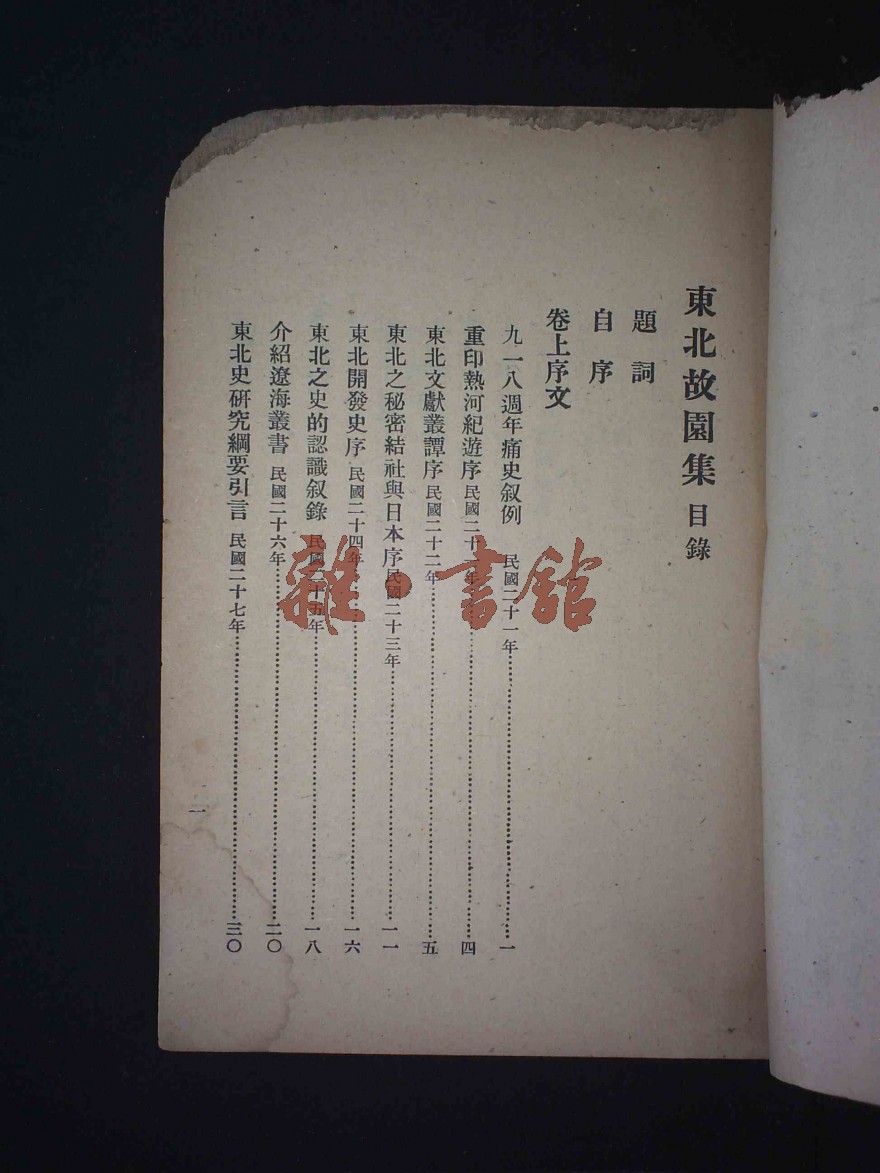 東北故園集 目錄
題詞
自序
卷上序文
九一八週年痛史叙例 民國二十一年……一
重印熱河紀遊序 民國二十年……四
東北文獻叢譚序 民國二十二年……五
東北之秘密結社與日本序 民國二十三年……一一
東北開發史序 民國二十四年……一六
東北之史的認識叙錄 民國二十五年……一八
介紹遼海叢書 民國二十六年……二〇
東北史研究綱要引言 民國二十七年……三〇
一
雜·書館